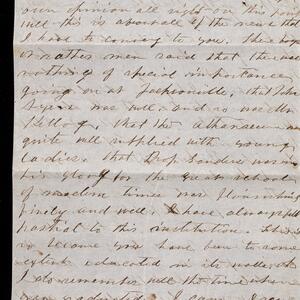 own opinion all right on this point
Well this is about all of the news that
I have to convey to you. The
or rather men said that there was
nothing of special importance
going on at Jacksonville, that John
Ayers was well and so was Mr
Kellog, that the Athenaeum was
quite well supplied with young
Ladies. that Prof Sanders was in
his glory for the great school
of modern times was flourishing
finely and well. I have always felt
partial to this institution. This
is because you have been to some
extent educated in its walls, oh
I do remember well the time when